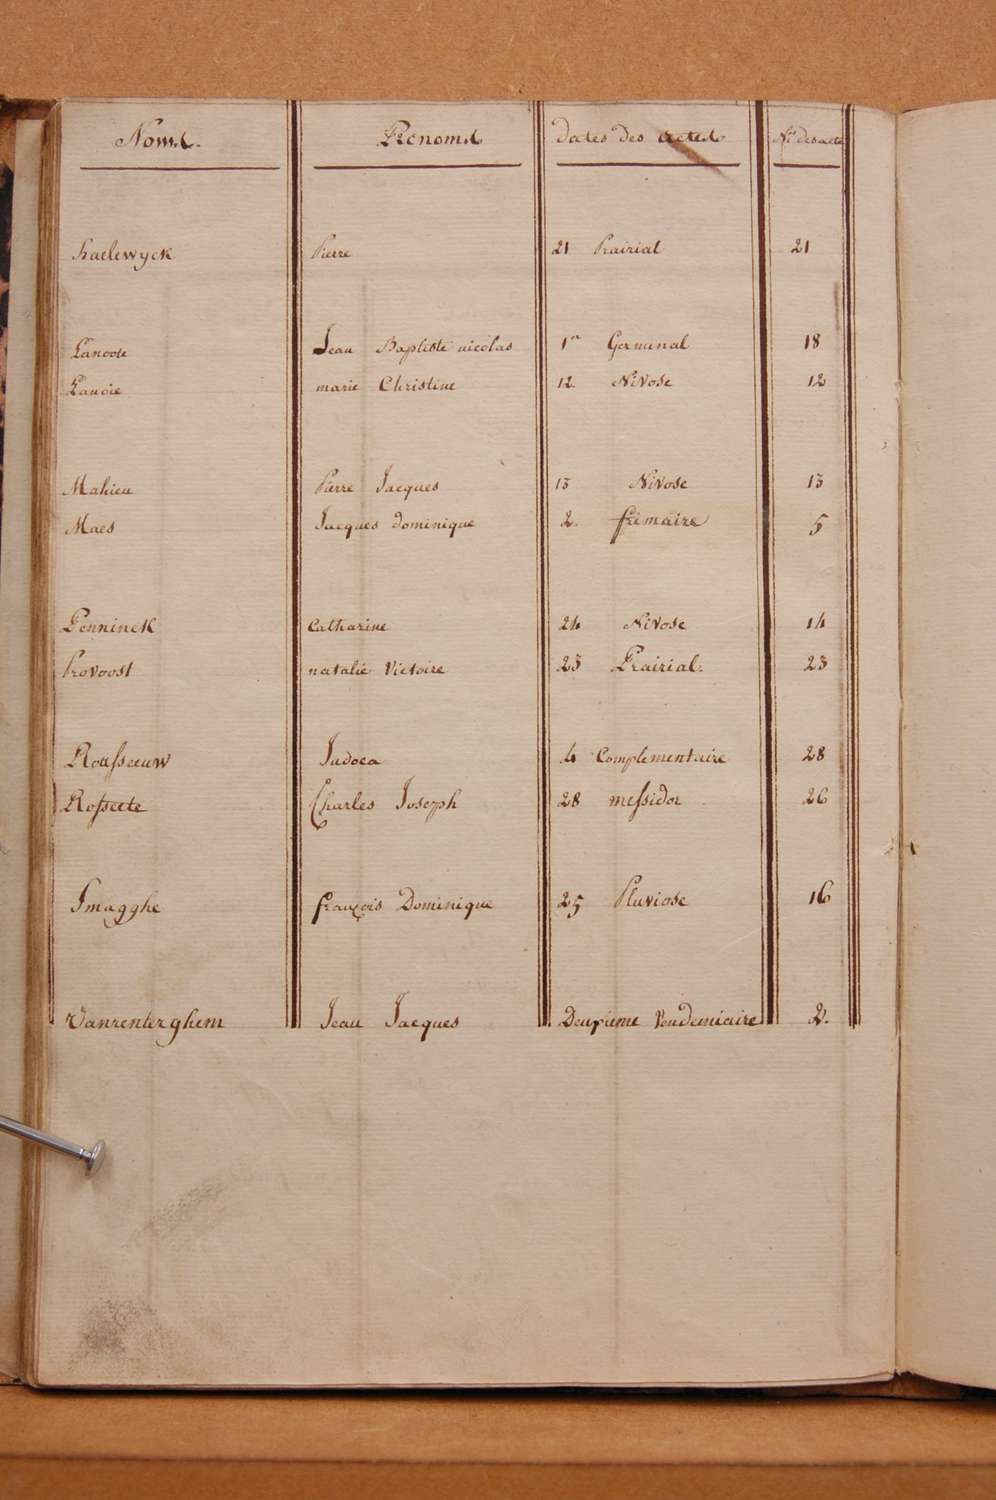 Noms. Prénoms Dates des actes Nos des acte
haelewyck Pierre 21 Prairial 21
Lanoote Jean Baptiste nicolas 1er Germinal 18
Lanoie marie Christine 12 Nivose 12
Mahieu Pierre Jacques 13 Nivose 13
Maes Jacques dominique 2. frimaire 5
Penninck Catharine 24 Nivose 14
Provoost natalie Victoire 23 Prairial. 23
Rousseeuw Judoca 4 Complementaire 28
Rosseete Charles Joseph 28 messidor 26
Smagghe françois Dominique 25 Pluviose 16
Vanrenterghem Jean Jacques Deuxieme Vendemiaire 2.